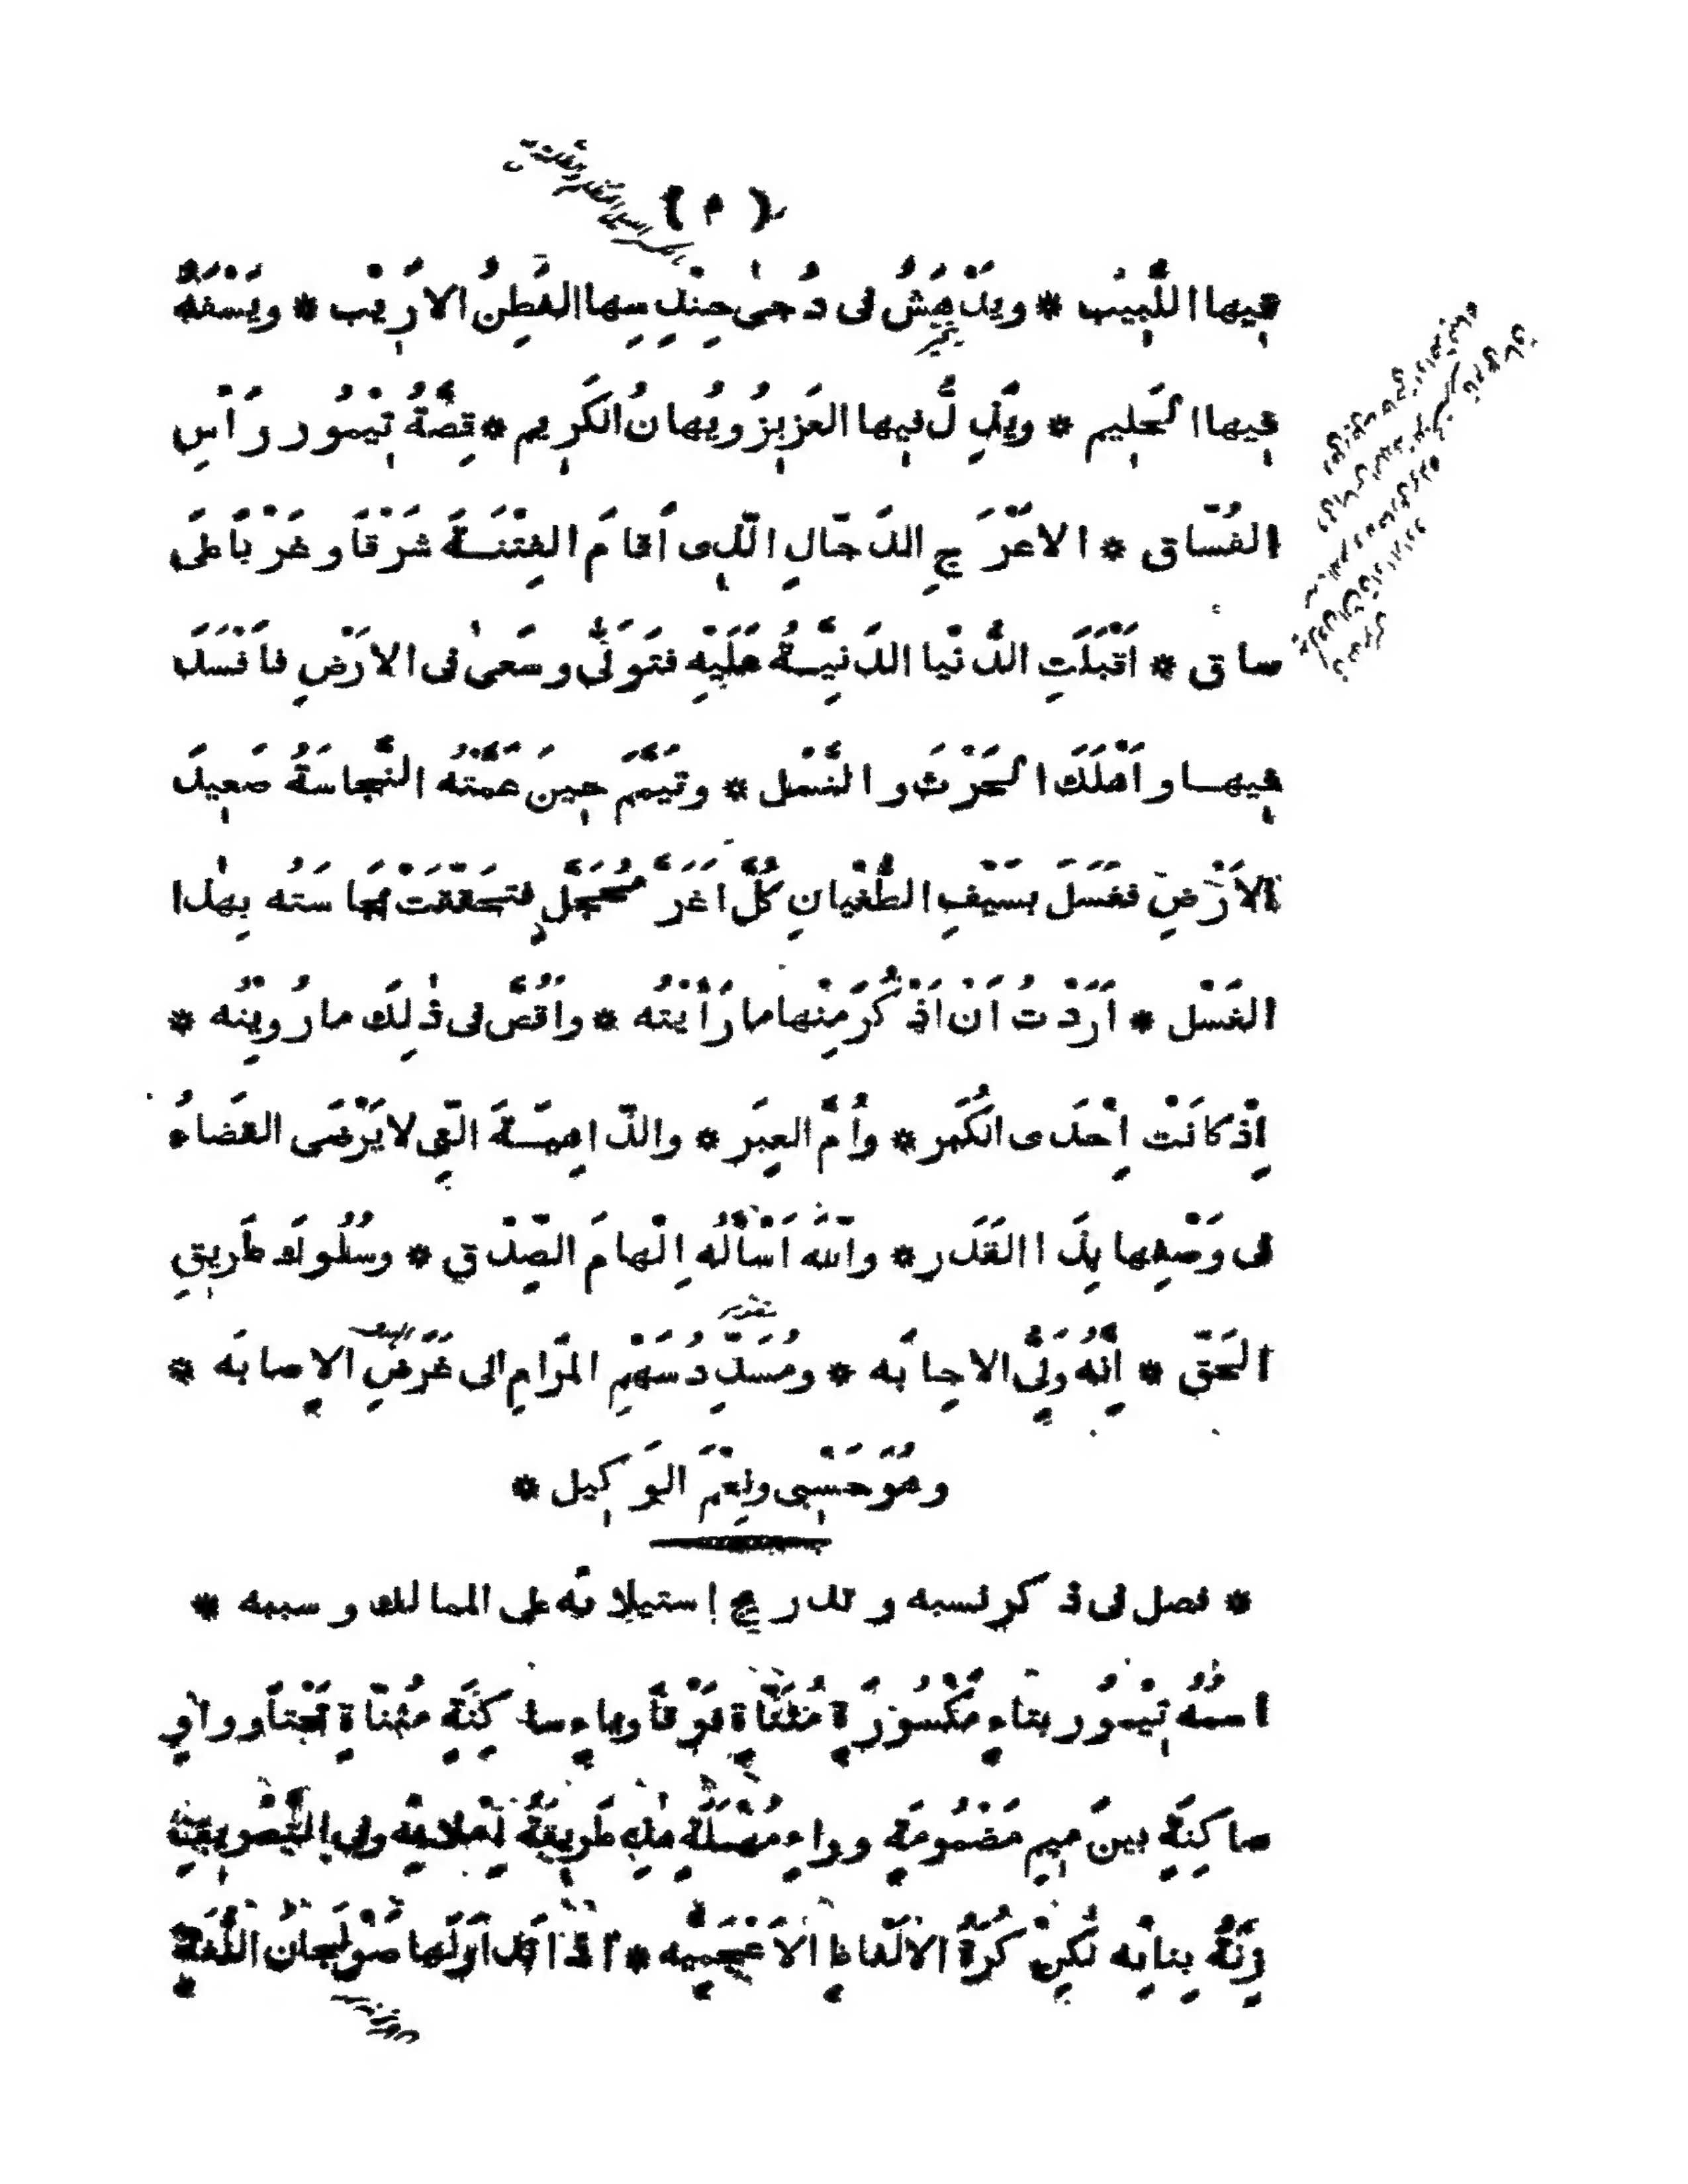 فيها اللَّبِيْب * ويَدْهَشُ فى دُجىٰ حِنْدِسِها الفَطِنُ الاَرِيْب * ويَسْفَهُ
فيها الحَلِيم * ويَذِلُّ فيها العَزِيزُ ويُهانُ الكَرِيم * قِصَّةُ تِيْمُور رَأْسِ
الفُسّاق * الاَعْرَجِ الدَجّالِ الّذِى اَقامَ الفِتْنَةَ شَرْقاً وغَرْباً على
ساق * اَقْبَلَتِ الدُّنْيا الدَنِيَّةُ عَلَيْهِ فتَوَلّٰى وسَعىٰ فى الاَرْضِ فاَفْسَدَ
فيها واَهْلَكَ الحَرْثَ والنَّسْل * وتَيَمَّمَ حِينَ عَمَّتْهُ النَّجاسَةُ صَعِيدَ
الاَرْضِ فغَسَلَ بسَيْفِ الطُّغْيانِ كُلَّ اَغَرَّ مُحَجَّلٍ فتَحَقّقَتْ نَجاسَتُه بِهٰذا
الغَسْل * اَرَدْتُ اَنْ اَذْكُرَ مِنْها ما رَأَيْتُه * واَقُصَّ فى ذٰلِكَ ما رُوِيْتُه *
اِذْ كانَتْ اِحْدَى الكُبَر * واُمَّ العِبَر * والدّاهِيَةَ الّتِى لا يَرْضَى القَضاءُ
فى وَصْفِها بِذَا القَدَر * واللهَ اَسْأَلُهُ اِلْهامَ الصِّدْق * وسُلُوكَ طَرِيقِ
الحَقّ * اِنَّهُ وَلِىُّ الاجابَه * ومُسَدِّدُ سَهْمِ المَرامِ الى غَرَضِ الاِصابَه *
وهُوَ حَسْبِى ونِعْمَ الوَكِيل *
* فصل فى ذكر نسبه وتدريج إستيلائه على الممالك وسببه *
اسمُهُ تِيْمُور بتاءٍ مَكْسُورَةٍ مُثَنّاةٍ فَوْقاً وياءٍ ساكِنَةٍ مُثَنّاةٍ تَحْتاً وواوٍ
ساكِنَةٍ بينَ مِيمٍ مَضْمُومَةٍ وراءٍ مُهْمَلَةٍ هٰذِهِ طَرِيقَةُ اِمْلائِه
وَزِنَةُ بِنائِه لكِنْ كُرَةُ الالْفاظِ الاَعْجَمِيّه * اذا تَداوَلَها صَوْلَجانُ اللُّغَةِ